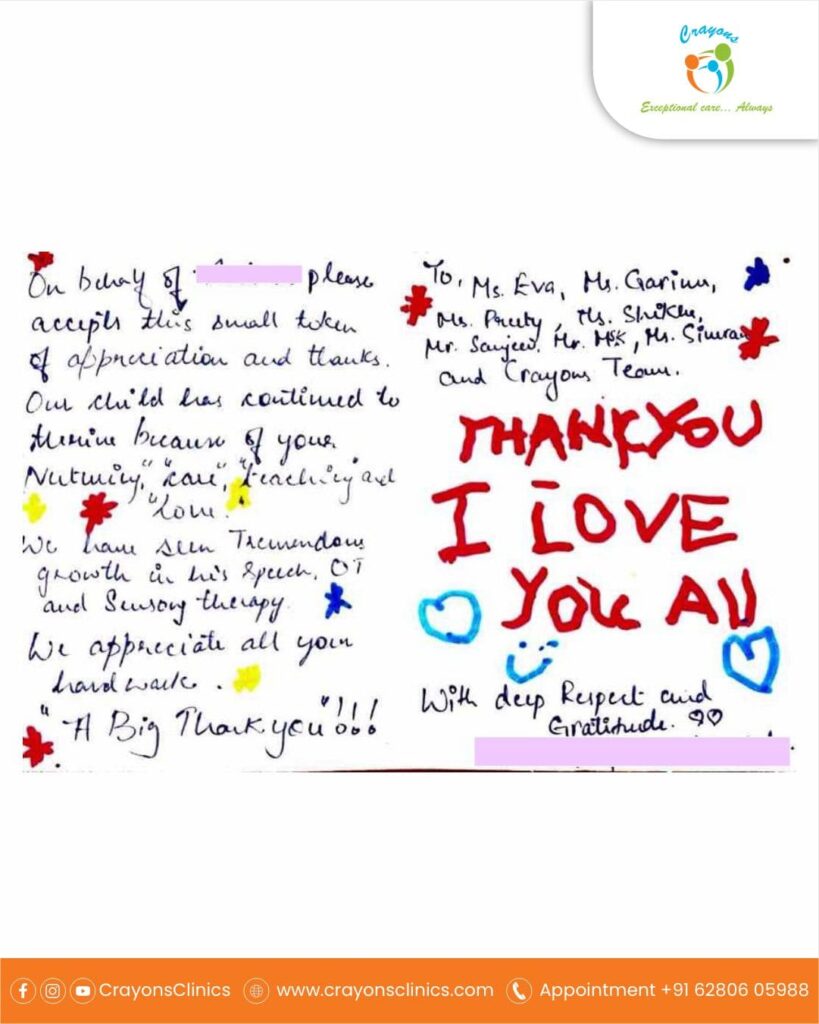 Crayons
Exceptional care... Always
On behalf of please
accepts this small token
of appreciation and thanks.
Our child has continued to
thrive because of your
Nurturing", "care", "teaching and
"Love."
We have seen Tremendous
growth in his Speech, OT
and Sensory therapy.
We appreciate all your
hardwork.
"A Big Thankyou"!!!
To, Ms. Eva, Ms. Garima,
Ms. Preety, Ms. Shikha,
Mr. Sanjeev, Mr. MSK, Ms. Simran
and Crayons Team.
THANKYOU
I LOVE
YOU All
With deep Respect and
Gratitude.
CrayonsClinics www.crayonsclinics.com Appointment +91 62806 05988